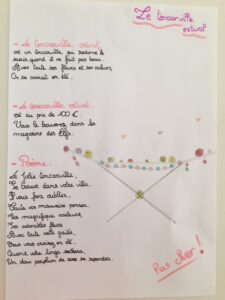 Le Tancarville
estival
- Le Tancarville estival
est un tancarville qui redonne le
sourire quand il ne fait pas beau.
Avec toute ses fleurs et ses couleurs,
On se croirait en été.
- Le Tancarville estival,
est au prix de 100 €.
Vous le trouverez dans les
magasins des Elfs.
- Poème:
Le Jolie Tancarville,
Se trouve dans votre ville.
Il vous fera oublier,
Toute vos mauvaise pensées.
Ses magnifique couleurs,
Ses adorables fleurs
Avec toute cette gaieté,
Vous vous croirez en été.
Quand votre linge séchera,
Un doux parfum de rose se rependra.
Pas cher !